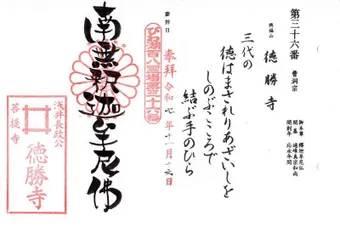 第三十六番　曹洞宗
徳勝寺
三代の
徳はまされりあざいしを
しのぶこころで
結ぶ手のひら
参拝日
奉拝　令和七年十一月十六日
びわ湖百八霊場第三十六番
南無釋迦牟尼佛
浅井長政公
菩提寺
徳勝寺